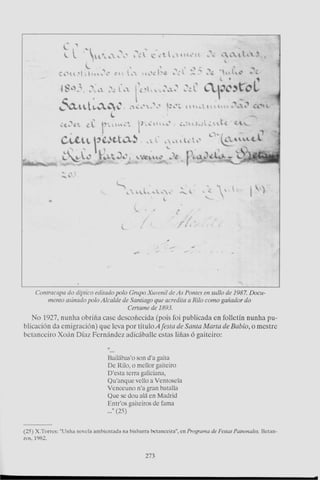 El Jurado del certamen de gaitas,
constituido en la noche del 25 de Julio de
1893, día de la festividad del Apóstol
Santiago, acordó por unanimidad con-
ceder el primer premio, consistente en
cien pesetas al gaitero
Contracapa do díptico editado polo Grupo Xuvenil de As Pontes en xullo de 1987. Docu-
mento asinado polo Alcalde de Santiago que acredita a Rilo como gañador do
Certame de 1893.
No 1927, nunha obriña case descoñecida (pois foi publicada en folletín nunha pu-
blicación da emigración) que leva por título A festa de Santa Marta de Babío, o mestre
betanceiro Xoán Díaz Fernández adicáballe estas liñas ó gaiteiro:
"...
Bailábas'o son d'a gaita
De Rilo, o mellor gaiteiro
D'esta terra galiciana,
Qu'anque vello a Ventosela
Venceuno n'a gran batalla
Que se dou alá en Madrid
Entr'os gaiteiros de fama
..." (25)
(25) X.Torres: "Unha novela ambientada na bisbarra betanceira", en Programa de Festas Patronales. Betan-
zos, 1982.
273